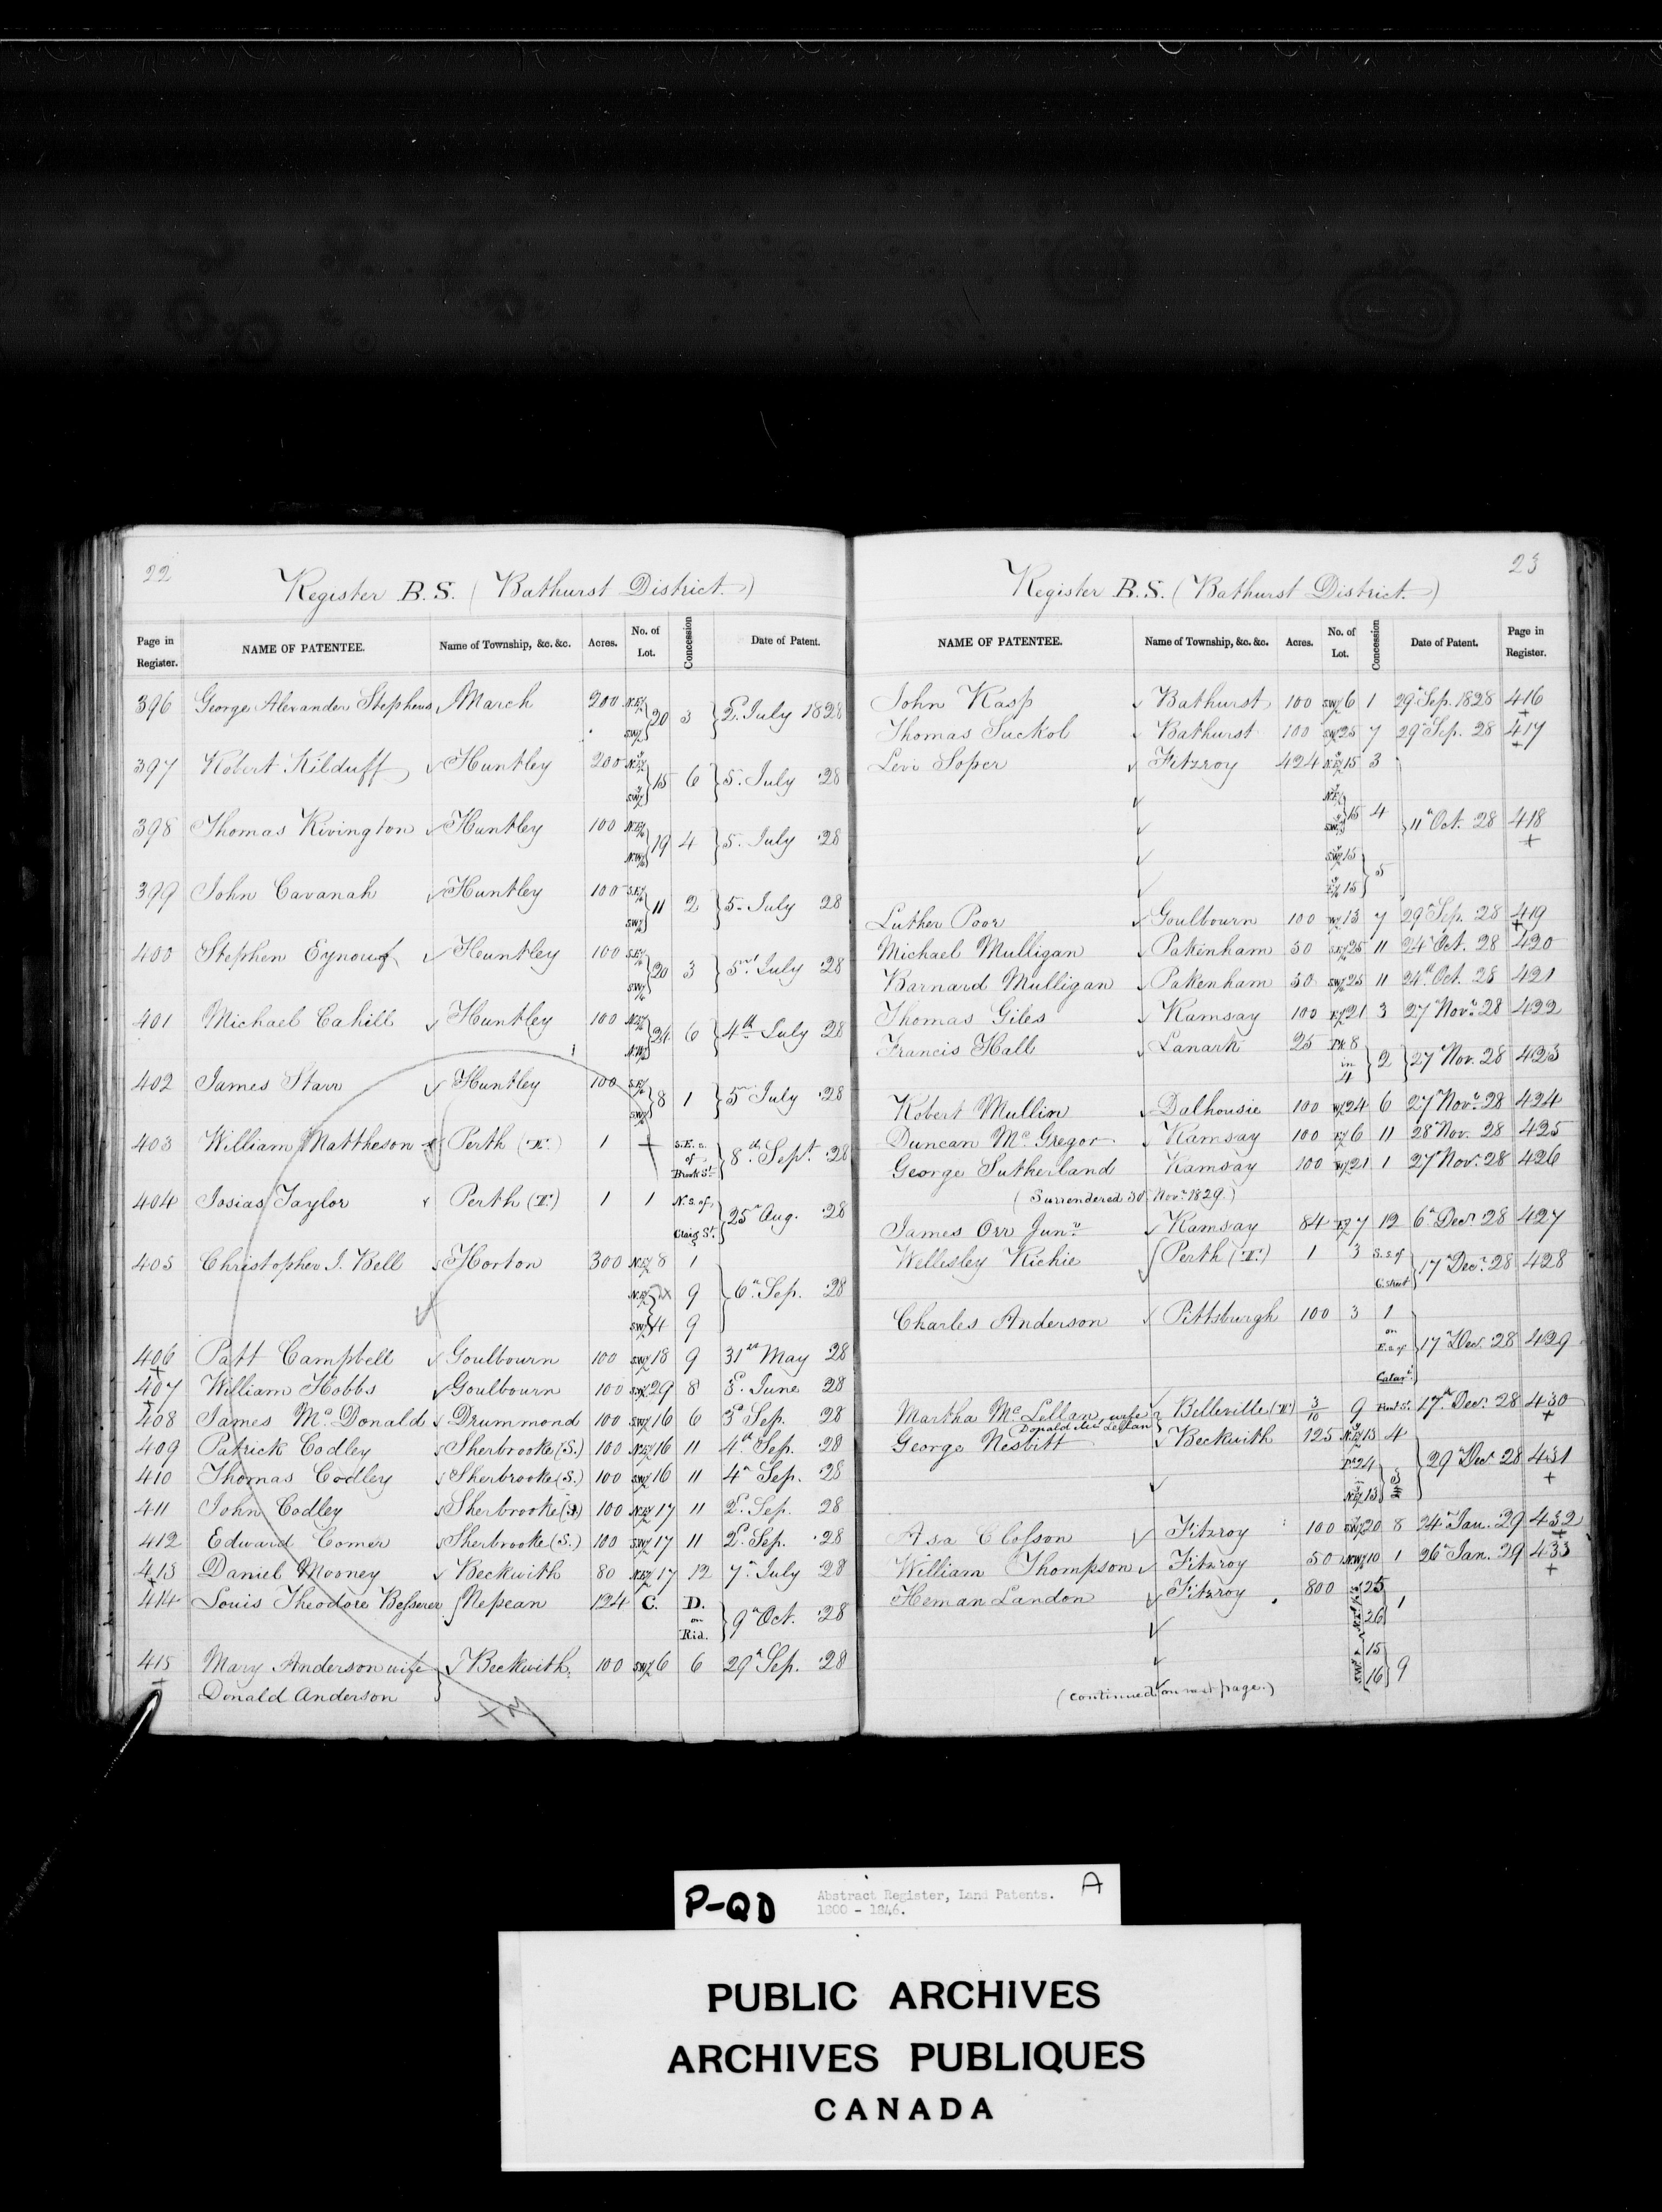 22
Register B.S. (Bathurst District.)
Page in Register. NAME OF PATENTEE. Name of Township, &c. &c. Acres. No. of Lot. Concession Date of Patent.
396 George Alexander Stephens March 200 N.E½ S.W½ 20 3 2d July 1828
397 Robert Kilduff Huntley 200 15 6 5 July 28
398 Thomas Rivington Huntley 100 19 4 5 July 28
399 John Cavanah Huntley 100 11 2 5 July 28
400 Stephen Huntley 100 20 3 5 July 28
401 Michael Cahill Huntley 100 6 4th July 28
402 James Starr Huntley 100 8 1 5 July 28
403 William Mattheson Perth (T.) 1 S.E. s. of Brock St. 8th Sept. 28
404 Josias Taylor Perth (T.) 1 1 N.s. of Craig St. 25th Aug. 28
405 Christopher J. Bell Horton 300 N.E½ 8 1
N.E½ 9 6th Sep. 28
S.W½ 4 9
406 Patt Campbell Goulbourn 100 S.W½ 18 9 31st May 28
407 William Hobbs Goulbourn 100 29 8 3d June 28
408 James Mc Donald Drummond 100 S.W½ 16 6 3d Sep. 28
409 Patrick Codley Sherbrooke (S.) 100 N.E½ 16 11 4th Sep. 28
410 Thomas Codley Sherbrooke (S.) 100 S.W½ 16 11 4th Sep. 28
411 John Codley Sherbrooke (S.) 100 N.E½ 17 11 2d Sep. 28
412 Edward Comer Sherbrooke (S.) 100 S.W½ 17 11 2d Sep. 28
413 Daniel Mooney Beckwith 80 N.E½ 17 12 7th July 28
414 Louis Theodore Besserer Nepean 124 C. D. on Rid. 9th Oct. 28
415 Mary Anderson wife Beckwith 100 S.W½ 6 6 29th Sep. 28
Donald Anderson
23
Register B.S. (Bathurst District.)
NAME OF PATENTEE. Name of Township, &c. &c. Acres. No. of Lot. Concession Date of Patent. Page in Register.
John Kasp Bathurst 100 S.W½ 6 1 29th Sep. 1828 416
Thomas Suckol Bathurst 100 25 7 29th Sep. 28 417
Levi Soper Fitzroy 424 15 3
15 4 11th Oct. 28 418
15
15 5
Luther Poor Goulbourn 100 W½ 13 7 29th Sep. 28 419
Michael Mulligan Pakenham 50 25 11 24th Oct. 28 420
Barnard Mulligan Pakenham 50 25 11 24th Oct. 28 421
Thomas Giles Ramsay 100 E½ 21 3 27th Novr. 28 422
Francis Hall Lanark 25 Pt. 8 in 4 2 27th Nov. 28 423
Robert Mullin Dalhousie 100 W½ 24 6 27th Novr. 28 424
Duncan Mc Gregor Ramsay 100 E½ 6 11 28th Nov. 28 425
George Sutherland Ramsay 100 21 1 27th Novr. 28 426
(Surrendered 30th Novr. 1829.)
James Orr Junr. Ramsay 84 E½ 7 12 6th Decr. 28 427
Wellesley Richie Perth (T.) 1 3 S.s. of 17th Decr. 28 428
Charles Anderson Pittsburgh 100 3 1
on E.s. of 17th Decr. 28 429
Catari.
Martha Mc Lellan, wife Belleville (T.) 3/10 9 17th Decr. 28 430
Donald Mc Lellan
George Nesbitt Beckwith 125 13 4
Pt. 24 29th Decr. 28 431
13
Asa Clofson Fitzroy 100 20 8 24th Jan. 29 432
William Thompson Fitzroy 50 10 1 26th Jan. 29 433
Heman Landon Fitzroy 800 25
26 1
15
16 9
(continued on next page.)
P-QD Abstract Register, Land Patents. A
1800 - 1846.
PUBLIC ARCHIVES
ARCHIVES PUBLIQUES
CANADA